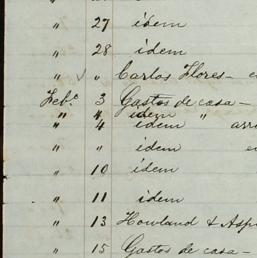 " 27 idem
" 28 idem
" " Carlos Flores -
Feb.º 3 Gastos de casa -
" 4 idem "
" 4 idem
" " idem
" 10 idem
" 11 idem
" 13 Howland & Asp
" 15 Gastos de casa -